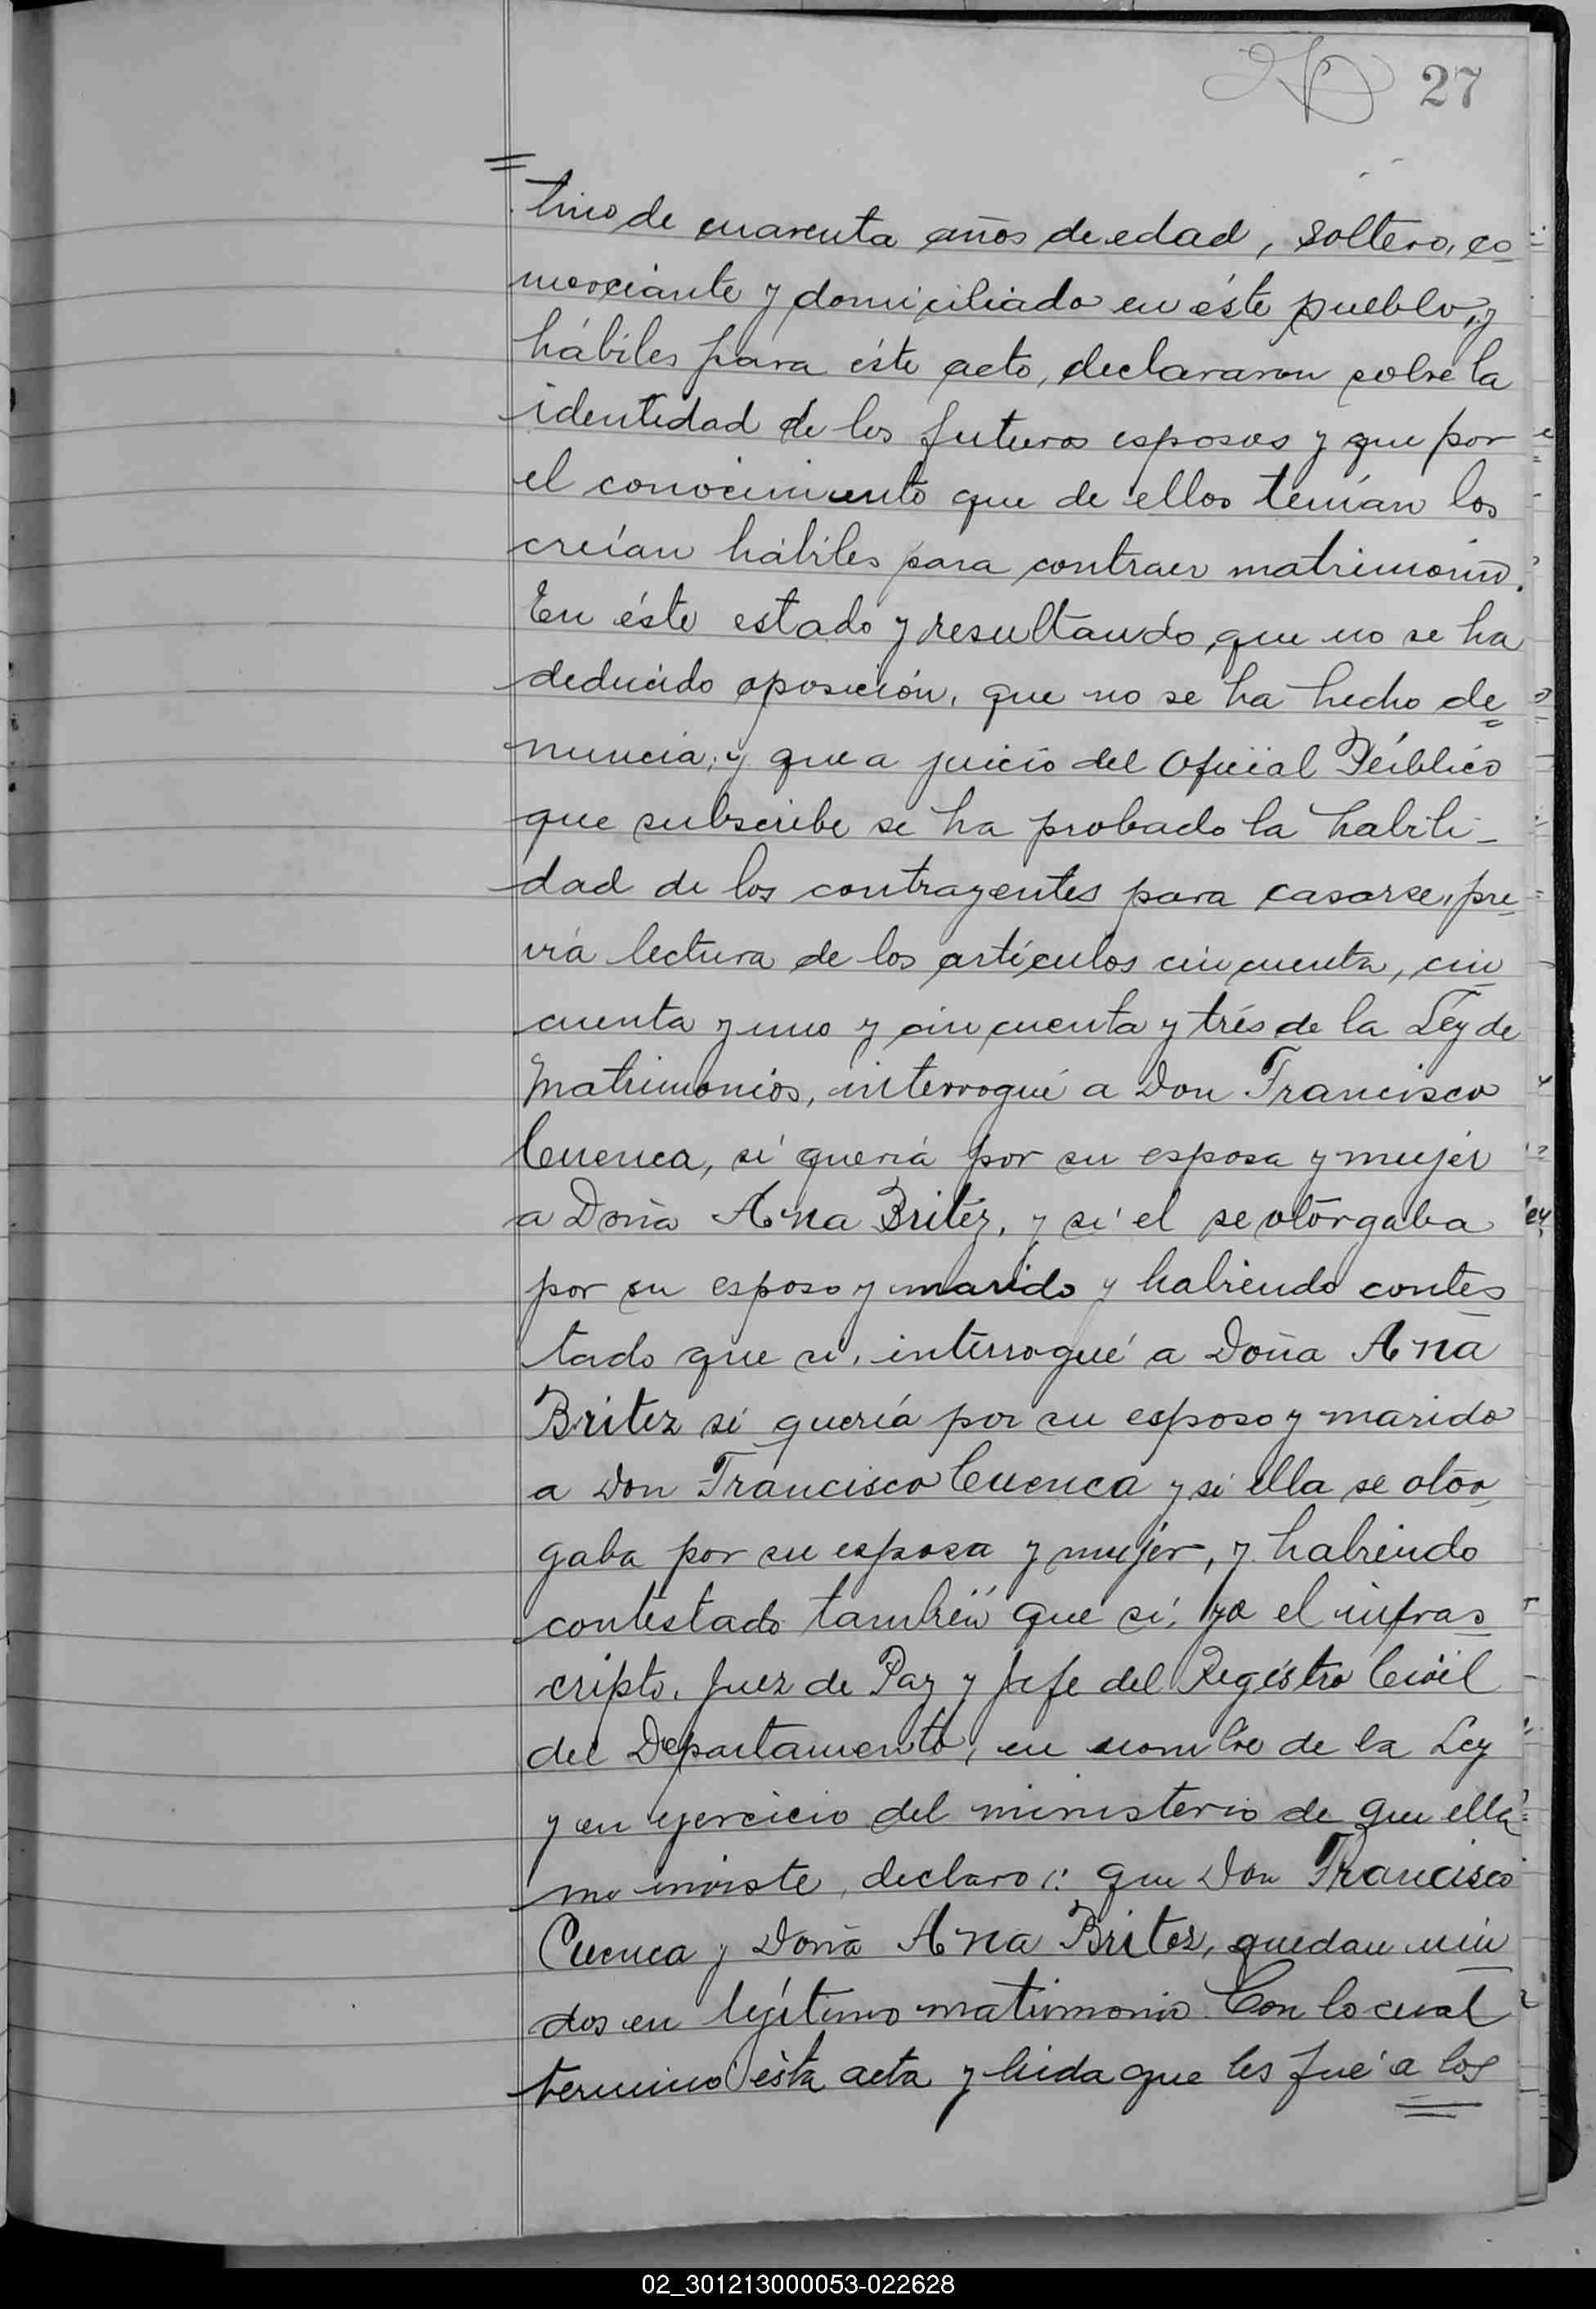 27
tino de cuarenta años de edad, soltero, co
merciante y domiciliado en éste pueblo, y
hábiles para éste acto, declararon sobre la
identidad de los futuros esposos y que por
el conocimiento que de ellos tenían los
creían hábiles para contraer matrimonio.
En éste estado y resultando, que no se ha
deducido oposición, que no se ha hecho de
nuncia, y que a juicio del Oficial Público
que subscribe se ha probado la habili-
dad de los contrayentes para casarse, pre
via lectura de los artículos cincuenta, cin
cuenta y uno y cincuenta y trés de la Ley de
Matrimonios, interrogué a Don Francisco
Cuenca, si quería por su esposa y mujer
a Doña Ana Britez, y si el se otorgaba
por su esposo y marido y habiendo contes
tado que si, interrogué a Doña Ana
Britez si quería por su esposo y marido
a Don Francisco Cuenca y si ella se otor
gaba por su esposa y mujer, y habiendo
contestado también que sí, yo el infras
cripto, Juez de Paz y Jefe del Registro Civil
del Departamento, en nombre de la Ley
y en ejercicio del ministerio de que ella
me inviste, declaro: que Don Francisco
Cuenca y Doña Ana Britez, quedan uni
dos en legítimo matrimonio. Con lo cual
terminó ésta acta y leida que les fué a los
02_301213000053-022628